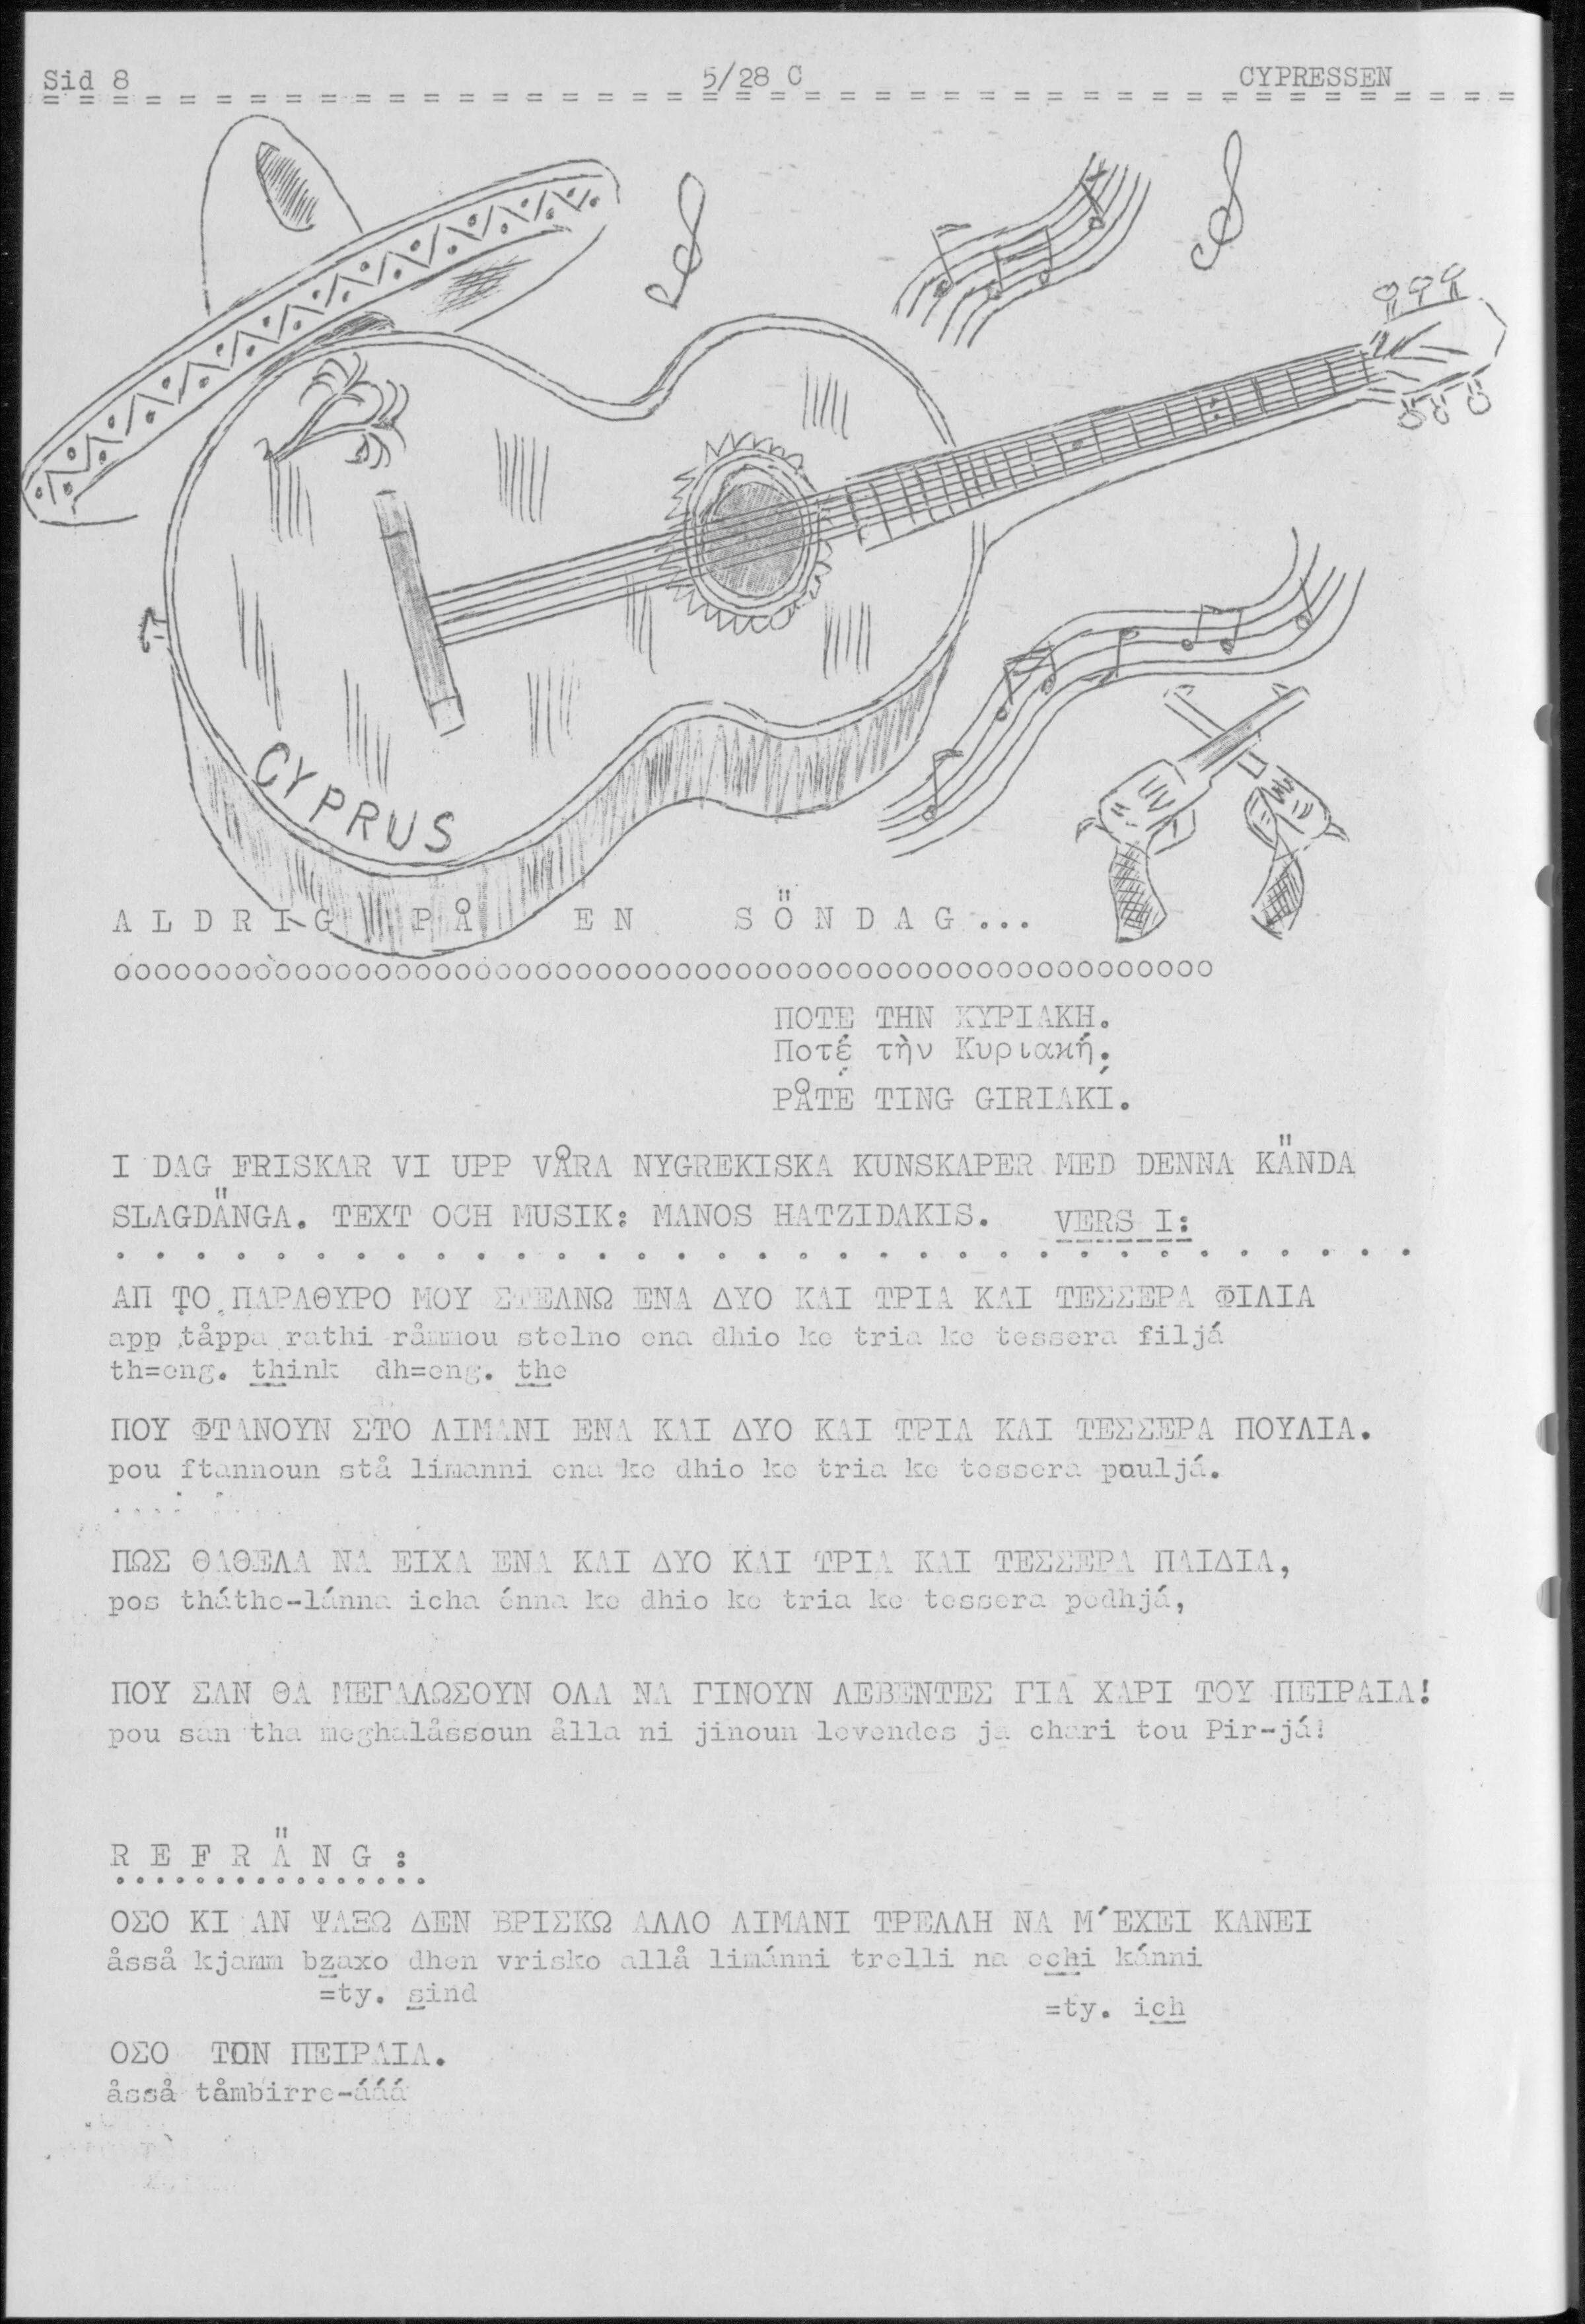 Sid 8 5/28 C CYPRESSEN
CYPRUS
ALDRIG PÅ EN SÖNDAG...
oooooooooooooooooooooooooooooooooooooooooooooooooooooooooooooooooo
ΠΟΤΕ ΤΗΝ ΚΥΡΙΑΚΗ.
Ποτέ τὴν Κυριακή.
PÅTÉ TING GIRIAKÍ.
I DAG FRISKAR VI UPP VÅRA NYGREKISKA KUNSKAPER MED DENNA KÄNDA
SLAGDÄNGA. TEXT OCH MUSIK: MANOS HATZIDAKIS. VERS I:
ΑΠ ΤΟ ΠΑΡΑΘΥΡΟ ΜΟΥ ΣΤΕΛΝΩ ΕΝΑ ΔΥΟ ΚΑΙ ΤΡΙΑ ΚΑΙ ΤΕΣΣΕΡΑ ΦΙΛΙΑ
app tåppa rathi råmmou stelno ena dhio ke tria ke tessera filjá
th=eng. think dh=eng. the
ΠΟΥ ΦΤΑΝΟΥΝ ΣΤΟ ΛΙΜΑΝΙ ΕΝΑ ΚΑΙ ΔΥΟ ΚΑΙ ΤΡΙΑ ΚΑΙ ΤΕΣΣΕΡΑ ΠΟΥΛΙΑ.
pou ftannoun stå límanni ena ke dhio ke tria ke tessera pouljá.
ΠΩΣ ΘΑΘΕΛΑ ΝΑ ΕΙΧΑ ΕΝΑ ΚΑΙ ΔΥΟ ΚΑΙ ΤΡΙΑ ΚΑΙ ΤΕΣΣΕΡΑ ΠΑΙΔΙΑ,
pos tháthe-lánna icha énna ke dhio ke tria ke tessera pedhjá,
ΠΟΥ ΣΑΝ ΘΑ ΜΕΓΑΛΩΣΟΥΝ ΟΛΑ ΝΑ ΓΙΝΟΥΝ ΛΕΒΕΝΤΕΣ ΓΙΑ ΧΑΡΙ ΤΟΥ ΠΕΙΡΑΙΑ!
pou san tha meghalåssoun ålla ni jinoun levendes ja chari tou Pir-já!
REFRÄNG:
ΟΣΟ ΚΙ ΑΝ ΨΑΞΩ ΔΕΝ ΒΡΙΣΚΩ ΑΛΛΟ ΛΙΜΑΝΙ ΤΡΕΛΛΗ ΝΑ Μ΄ΕΧΕΙ ΚΑΝΕΙ
åsså kjamm bzaxo dhen vrisko allå limánni trelli na echi kánni
=ty. sind =ty. ich
ΟΣΟ ΤΟΝ ΠΕΙΡΑΙΑ.
åsså tåmbirre-ááá